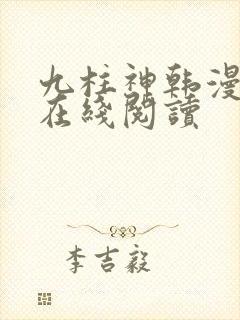 九柱神韩漫
在綫閱讀
李吉毅